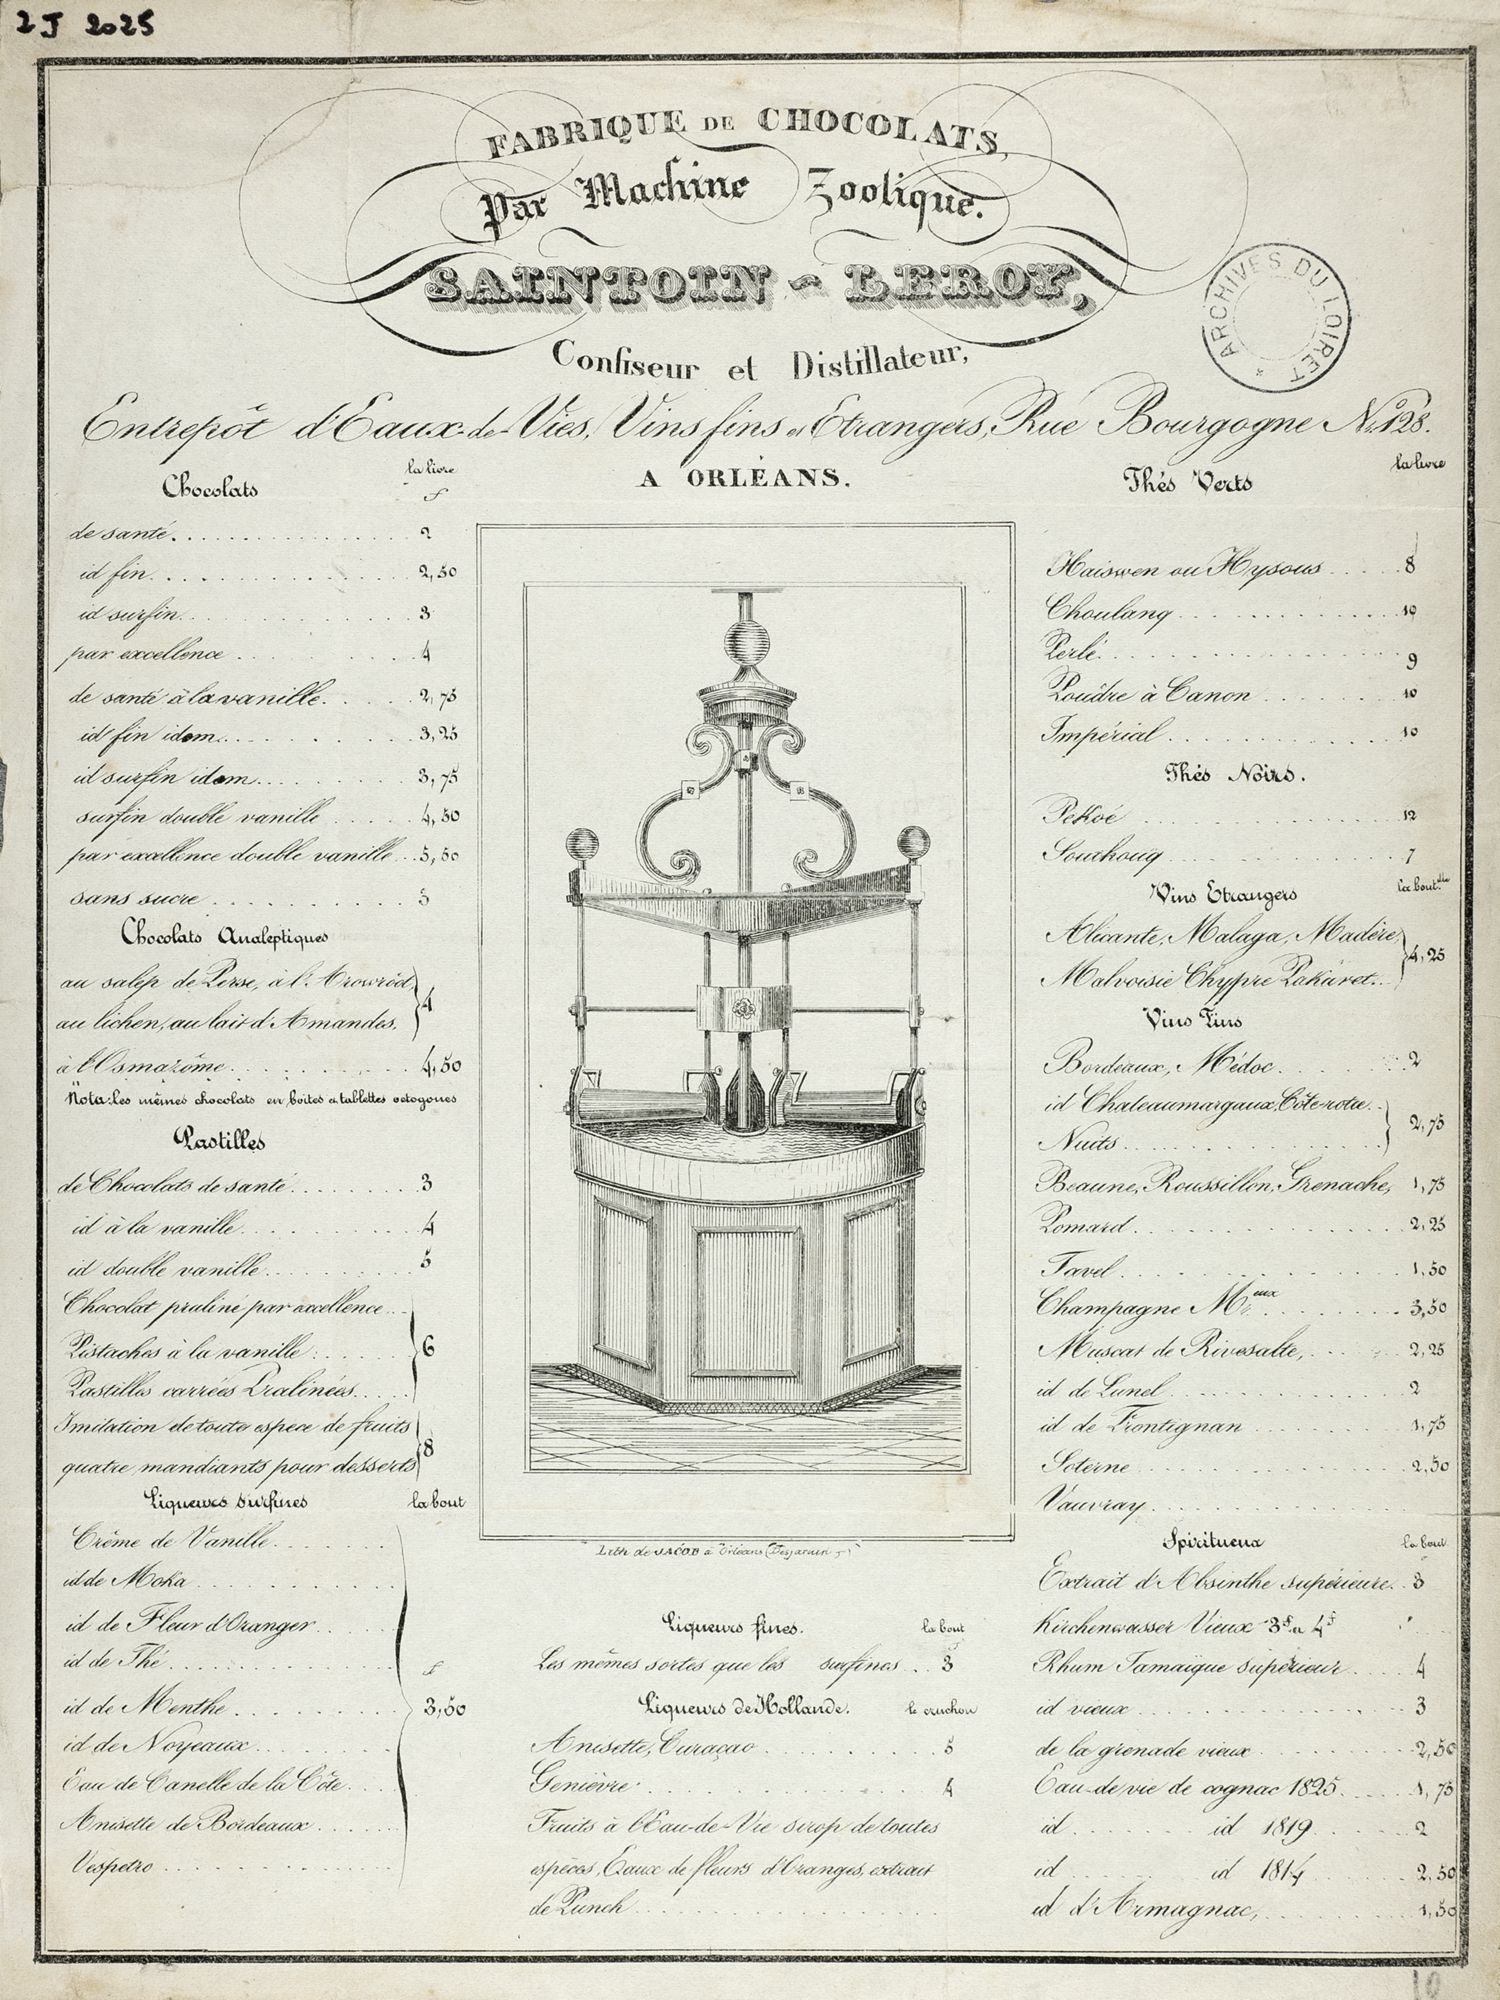 2 J 2025
FABRIQUE DE CHOCOLATS,
Par Machine Zoolique.
SAINTOIN - LEROY,
Confiseur et Distillateur,
Entrepôt d'Eaux-de-Vies, Vins fins et Etrangers, Rue Bourgogne No. 128.
A ORLÉANS.
ARCHIVES DU LOIRET
Chocolats la livre
f
de santé 2
id fin 2,50
id surfin 3
par excellence 4
de santé à la vanille 2,75
id fin idem 3,25
id surfin idem 3,75
surfin double vanille 4,50
par excellence double vanille 5,50
sans sucre 3
Chocolats Analeptiques
au salep de Perse, à l'Arowrôd
au lichen, au lait d'Amandes, 4
à l'Osmazôme 4,50
Nota: Les mêmes chocolats en boites et tablettes octogones
Pastilles
de Chocolats de santé 3
id à la vanille 4
id double vanille 5
Chocolat praliné par excellence
Pistaches à la vanille 6
Pastilles carrées Pralinées
Imitation de toute espece de fruits
quatre mandiants pour desserts 8
Liqueurs surfines la bout
Crême de Vanille
id de Moka
id de Fleur d'Oranger
id de Thé f
id de Menthe 3,50
id de Noyeaux
Eau de Canelle de la Côte
Anisette de Bordeaux
Vespetro
Lith de JACOB à Orléans
Liqueurs fines. la bout
Les mêmes sortes que les surfines 3
Liqueurs de Hollande. le cruchon
Anisette, Curaçao 5
Genièvre 4
Fruits à l'Eau-de-Vie sirop de toutes
espèces, Eaux de fleurs d'Oranges, extrait
de Punch
Thés Verts la livre
Haiswen ou Hysous 8
Choulang 10
Perlé 9
Poûdre à Canon 10
Impérial 10
Thés Noirs.
Pekoé 12
Souchoug 7
Vins Etrangers la boutlle
Alicante, Malaga, Madère,
Malvoisie Chypre Pakaret 4,25
Vins Fins
Bordeaux, Médoc 2
id Chateaumargaux, Côte-rotie
Nuits 2,75
Beaune, Roussillon, Grenache, 1,75
Pomard 2,25
Tavel 1,50
Champagne Mreux 3,50
Muscat de Rivesalte, 2,25
id de Lunel 2
id de Frontignan 1,75
Soterne 2,50
Vauvray
Spiritueux la bout
Extrait d'Absinthe supérieure 3
Kirchenwasser Vieux 3f et 4f
Rhum Jamaïque supérieur 4
id vieux 3
de la grenade vieux 2,50
Eau-de vie de cognac 1825 1,75
id id 1819 2
id id 1814 2,50
id d'Armagnac, 1,50
10